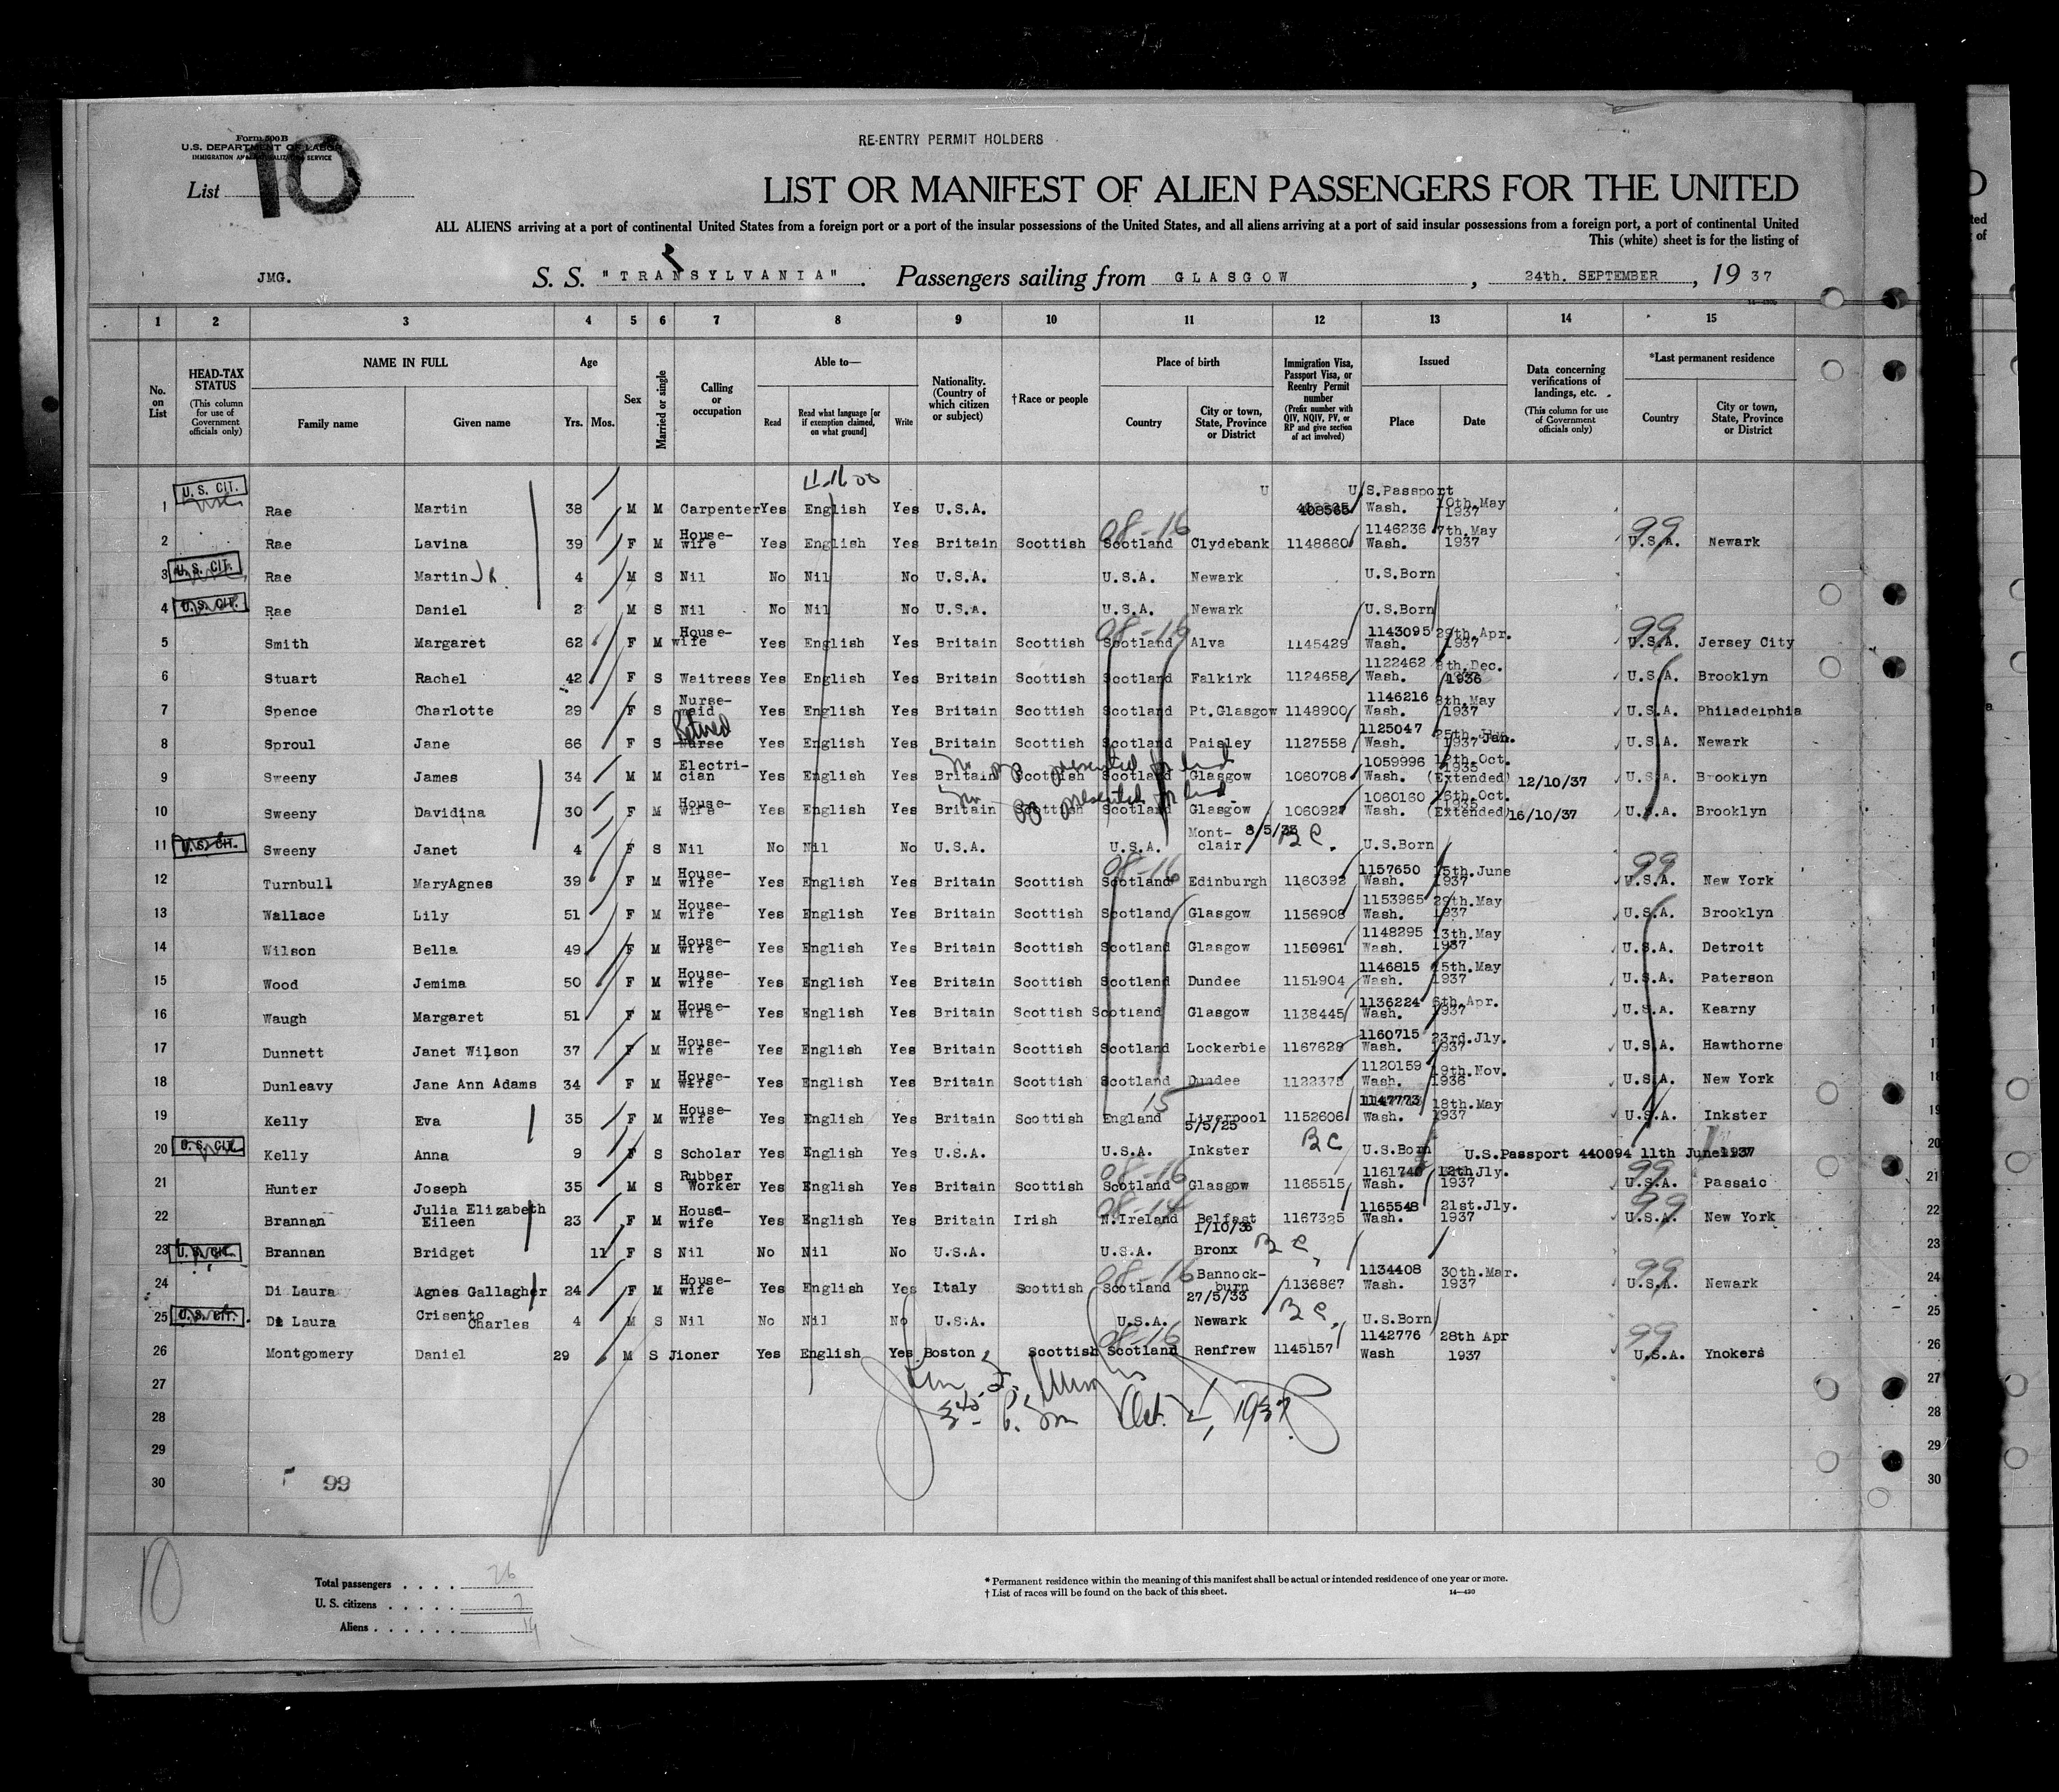 Form 500 B
U.S. DEPARTMENT OF LABOR
IMMIGRATION AND NATURALIZATION SERVICE
List 10
RE-ENTRY PERMIT HOLDERS
LIST OR MANIFEST OF ALIEN PASSENGERS FOR THE UNITED
ALL ALIENS arriving at a port of continental United States from a foreign port or a port of the insular possessions of the United States, and all aliens arriving at a port of said insular possessions from a foreign port, a port of continental United
This (white) sheet is for the listing of
JMG. S. S. "TRANSYLVANIA". Passengers sailing from GLASGOW, 24th. SEPTEMBER, 19 37
1 2 3 4 5 6 7 8 9 10 11 12 13 14 15
No. on List
HEAD-TAX STATUS (This column for use of Government officials only)
NAME IN FULL Family name Given name
Age Yrs. Mos.
Sex
Married or single
Calling or occupation
Able to— Read Read what language [or if exemption claimed, on what ground] Write
Nationality. (Country of which citizen or subject)
†Race or people
Place of birth Country City or town, State, Province or District
Immigration Visa, Passport Visa, or Reentry Permit number (Prefix number with QIV, NQIV, PV, or RP and give section of act involved)
Issued Place Date
Data concerning verifications of landings, etc. (This column for use of Government officials only)
*Last permanent residence Country City or town, State, Province or District
1 U.S. CIT. Rae Martin 38 M M Carpenter Yes English Yes U.S.A. U U.S.Passport 408565 Wash. 10th.May 1937
2 Rae Lavina 39 F M House-wife Yes English Yes Britain Scottish 08-16 Scotland Clydebank 1148660 1146236 Wash. 7th.May 1937 99 U.S.A. Newark
3 U.S. CIT. Rae Martin JR. 4 M S Nil No Nil No U.S.A. U.S.A. Newark U.S.Born
4 U.S. CIT. Rae Daniel 2 M S Nil No Nil No U.S.A. U.S.A. Newark U.S.Born
5 Smith Margaret 62 F M House-wife Yes English Yes Britain Scottish 08-16 Scotland Alva 1145429 1143095 Wash. 29th.Apr. 1937 99 U.S.A. Jersey City
6 Stuart Rachel 42 F S Waitress Yes English Yes Britain Scottish Scotland Falkirk 1124658 1122462 Wash. 8th.Dec. 1936 U.S.A. Brooklyn
7 Spence Charlotte 29 F S Nurse-maid Yes English Yes Britain Scottish Scotland Pt.Glasgow 1148900 1146216 Wash. 8th.May 1937 U.S.A. Philadelphia
8 Sproul Jane 66 F S Retired Nurse Yes English Yes Britain Scottish Scotland Paisley 1127558 1125047 Wash. 25th.Jan. 1937 U.S.A. Newark
9 Sweeny James 34 M M Electri-cian Yes English Yes Britain Scottish Scotland Glasgow 1060708 1059996 Wash. 12th.Oct. 1935 (Extended) 12/10/37 U.S.A. Brooklyn
10 Sweeny Davidina 30 F M House-wife Yes English Yes Britain Scottish Scotland Glasgow 1060927 1060160 Wash. 16th.Oct. 1935 (Extended) 16/10/37 U.S.A. Brooklyn
11 U.S. CIT. Sweeny Janet 4 F S Nil No Nil No U.S.A. U.S.A. Mont-clair 8/5/33 B C. U.S.Born
12 Turnbull MaryAgnes 39 F M House-wife Yes English Yes Britain Scottish 08-16 Scotland Edinburgh 1160392 1157650 Wash. 15th.June 1937 99 U.S.A. New York
13 Wallace Lily 51 F M House-wife Yes English Yes Britain Scottish Scotland Glasgow 1156908 1153965 Wash. 29th.May 1937 U.S.A. Brooklyn
14 Wilson Bella 49 F M House-wife Yes English Yes Britain Scottish Scotland Glasgow 1150961 1148295 Wash. 13th.May 1937 U.S.A. Detroit
15 Wood Jemima 50 F M House-wife Yes English Yes Britain Scottish Scotland Dundee 1151904 1146815 Wash. 15th.May 1937 U.S.A. Paterson
16 Waugh Margaret 51 F M House-wife Yes English Yes Britain Scottish Scotland Glasgow 1138445 1136224 Wash. 6th.Apr. 1937 U.S.A. Kearny
17 Dunnett Janet Wilson 37 F M House-wife Yes English Yes Britain Scottish Scotland Lockerbie 1167628 1160715 Wash. 23rd.Jly. 1937 U.S.A. Hawthorne
18 Dunleavy Jane Ann Adams 34 F M House-wife Yes English Yes Britain Scottish Scotland Dundee 1122375 1120159 Wash. 19th.Nov. 1936 U.S.A. New York
19 Kelly Eva 35 F M House-wife Yes English Yes Britain Scottish 15 England Liverpool 1152606 1147773 Wash. 18th.May 1937 U.S.A. Inkster
20 U.S. CIT. Kelly Anna 9 F S Scholar Yes English Yes U.S.A. U.S.A. 5/5/25 Inkster B C U.S.Born U.S.Passport 440094 11th June 1937
21 Hunter Joseph 35 M S Rubber Worker Yes English Yes Britain Scottish 08-16 Scotland Glasgow 1165515 1161740 Wash. 12th.Jly. 1937 99 U.S.A. Passaic
22 Brannan Julia Elizabeth Eileen 23 F M House-wife Yes English Yes Britain Irish 08-14 N.Ireland Belfast 1167325 1165548 Wash. 21st.Jly. 1937 99 U.S.A. New York
23 U.S. CIT. Brannan Bridget 11 F S Nil No Nil No U.S.A. U.S.A. 1/10/36 Bronx B C.
24 Di Laura Agnes Gallagher 24 F M House-wife Yes English Yes Italy Scottish 08-16 Scotland Bannock-burn 1136867 1134408 Wash. 30th.Mar. 1937 99 U.S.A. Newark
25 U.S. CIT. Di Laura Crisento Charles 4 M S Nil No Nil No U.S.A. U.S.A. 27/5/33 Newark B C. U.S.Born
26 Montgomery Daniel 29 M S Jioner Yes English Yes Boston Scottish 08-16 Scotland Renfrew 1145157 1142776 Wash 28th Apr 1937 99 U.S.A. Ynokers
27
28 Oct. 1937
29
30 99
10
Total passengers . . . . 26
U. S. citizens . . . . . 7
Aliens . . . . . .
* Permanent residence within the meaning of this manifest shall be actual or intended residence of one year or more.
† List of races will be found on the back of this sheet. 14—430